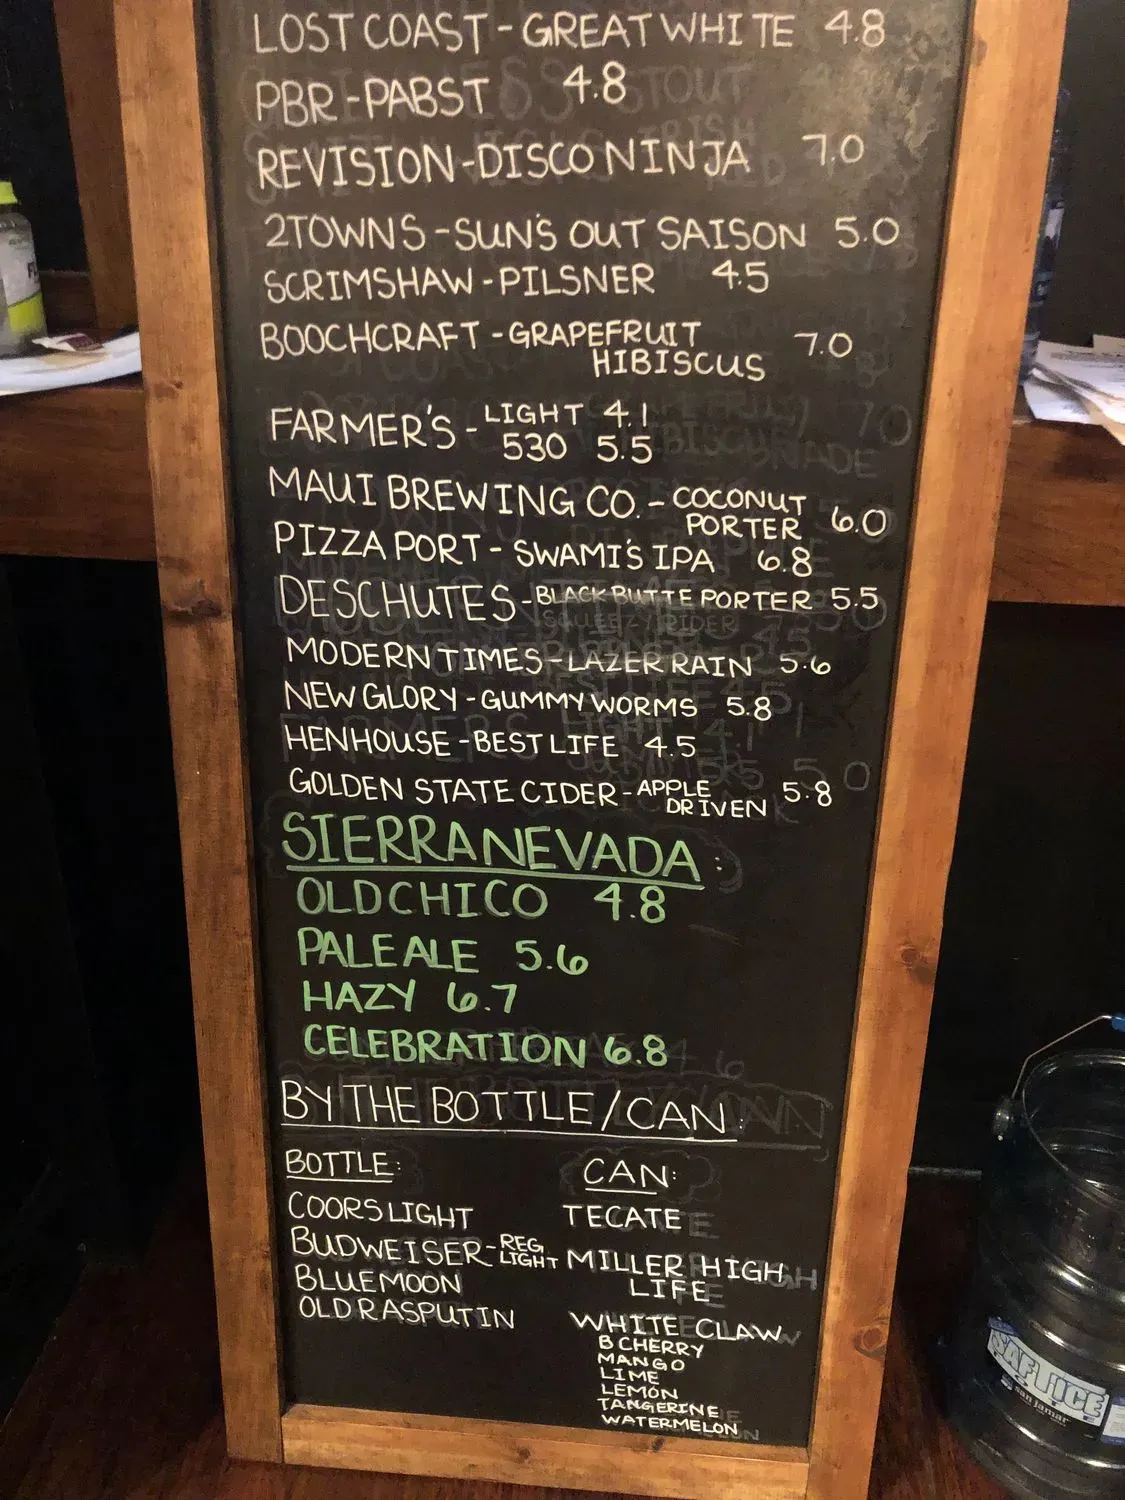 LOST COAST - GREAT WHITE 4.8
PBR - PABST 4.8
REVISION - DISCO NINJA 7.0
2TOWNS - SUN'S OUT SAISON 5.0
SCRIMSHAW - PILSNER 4.5
BOOCHCRAFT - GRAPEFRUIT
HIBISCUS 7.0
FARMER'S - LIGHT 4.1
530 5.5
MAUI BREWING CO. - COCONUT
PORTER 6.0
PIZZA PORT - SWAMI'S IPA 6.8
DESCHUTES - BLACK BUTTE PORTER 5.5
MODERN TIMES - LAZER RAIN 5.6
NEW GLORY - GUMMY WORMS 5.8
HENHOUSE - BEST LIFE 4.5
GOLDEN STATE CIDER - APPLE
DRIVEN 5.8
SIERRA NEVADA:
OLD CHICO 4.8
PALE ALE 5.6
HAZY 6.7
CELEBRATION 6.8
BY THE BOTTLE/CAN:
BOTTLE:
COORS LIGHT
BUDWEISER - REG
LIGHT
BLUE MOON
OLD RASPUTIN
CAN:
TECATE
MILLER HIGH
LIFE
WHITE CLAW
B CHERRY
MANGO
LIME
LEMON
TANGERINE
WATERMELON
SAF T ICE
san jamar